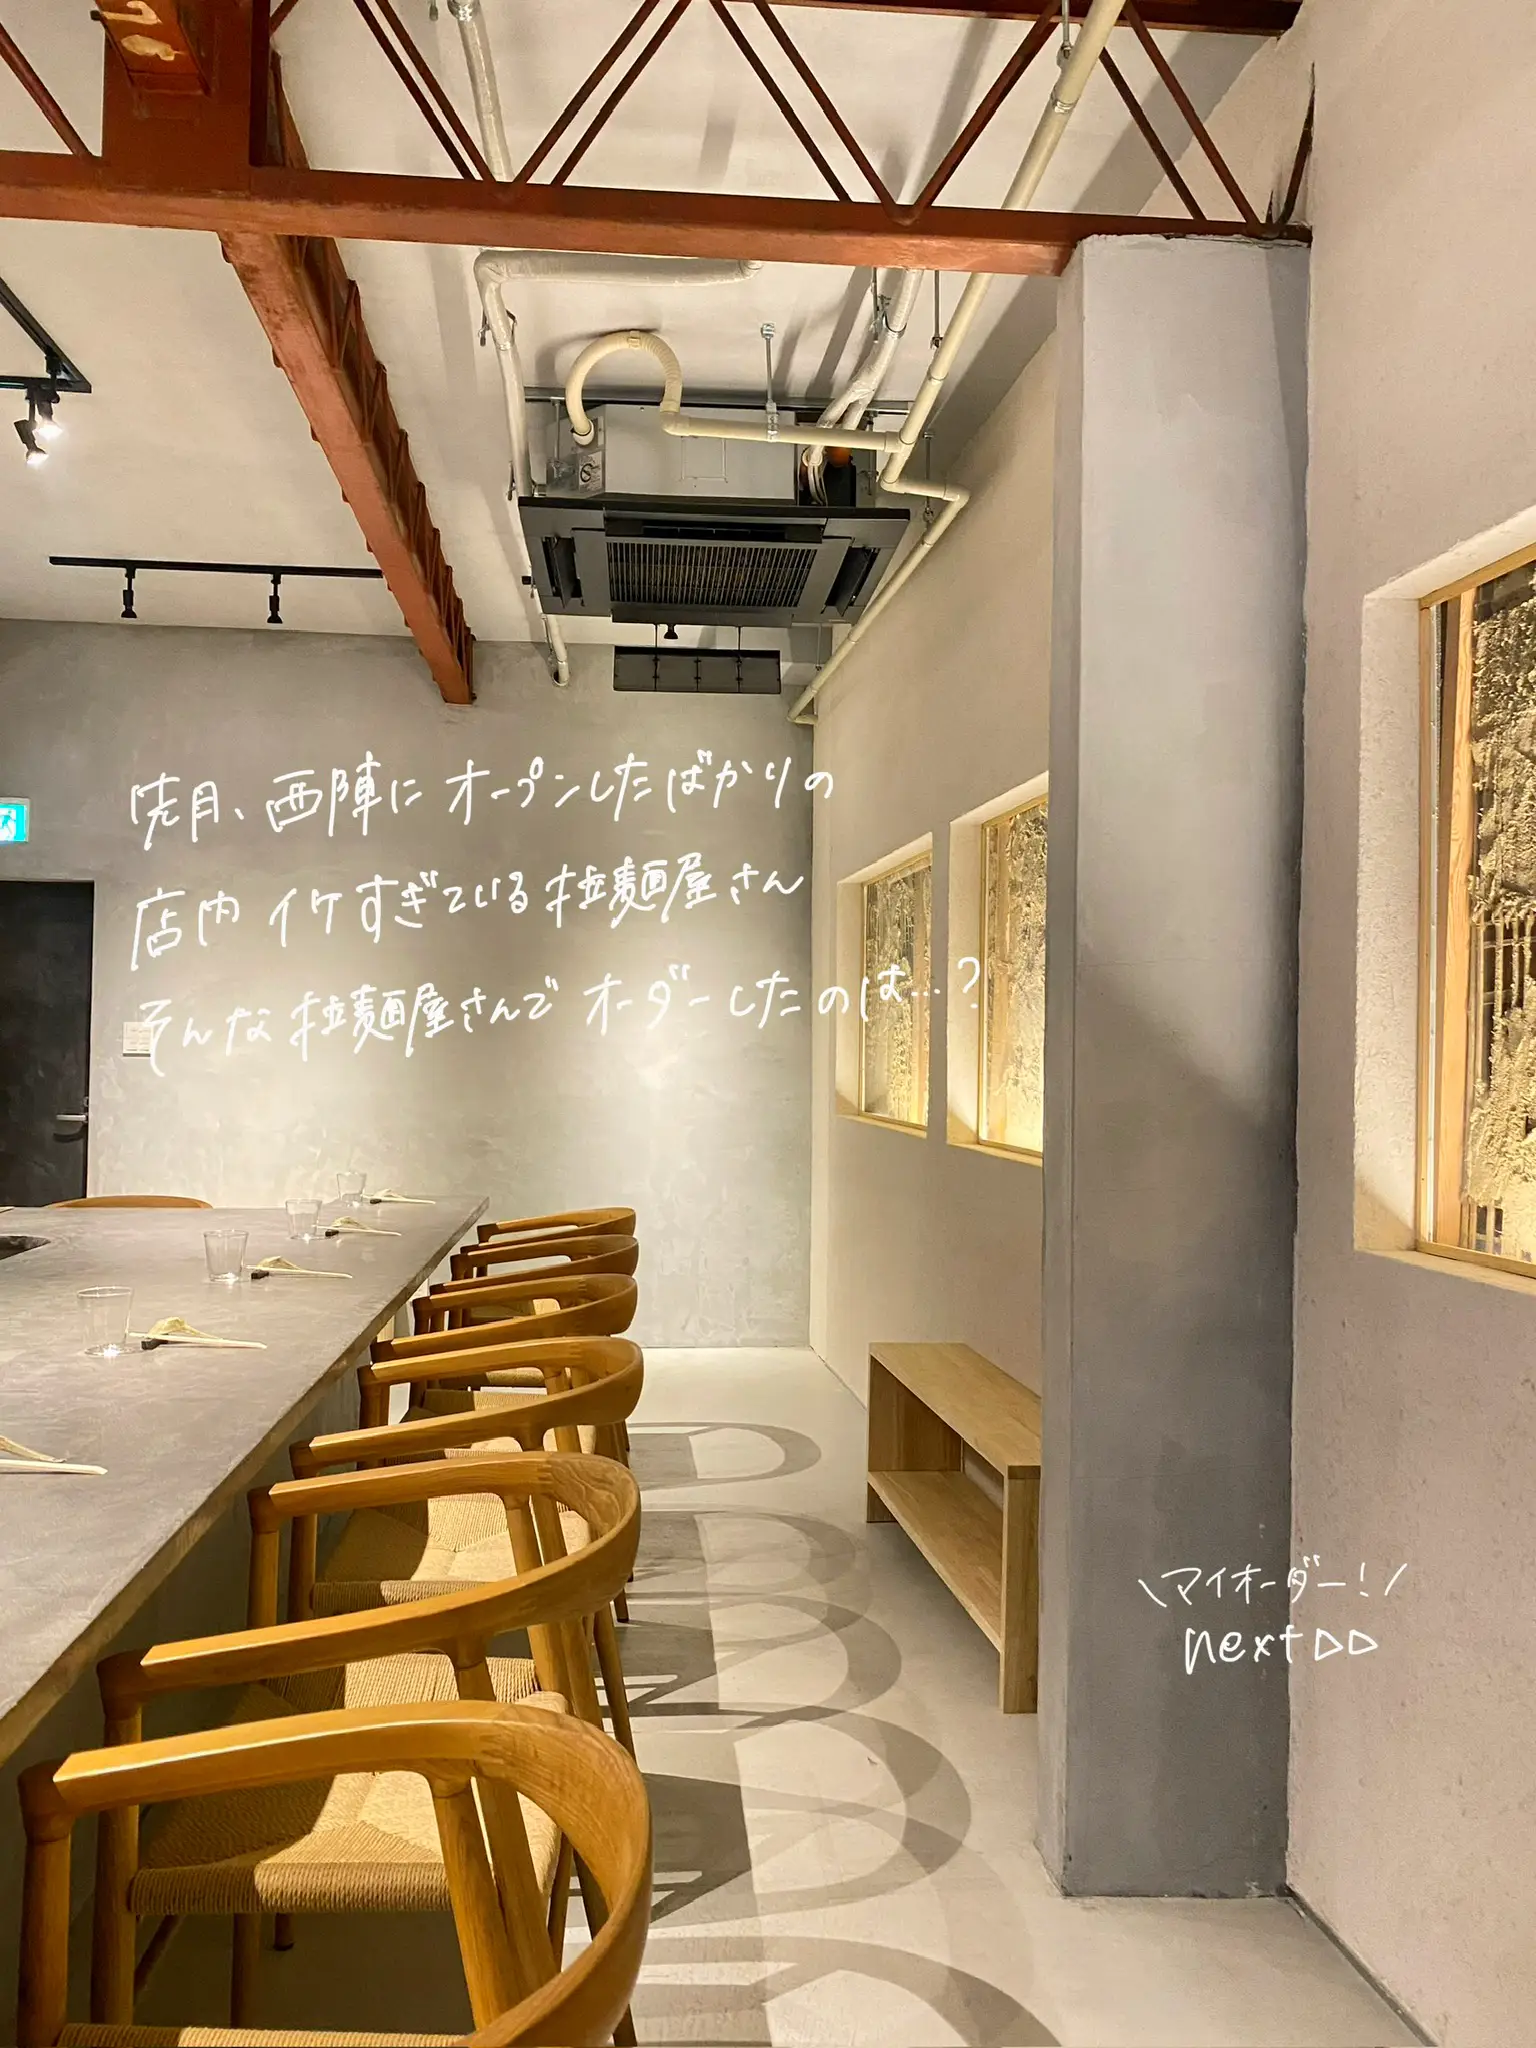 先月、西陣にオープンしたばかりの
店内イケすぎている拉麺屋さん
そんな拉麺屋さんでオーダーしたのは…？
\マイオーダー！/
next▷▷